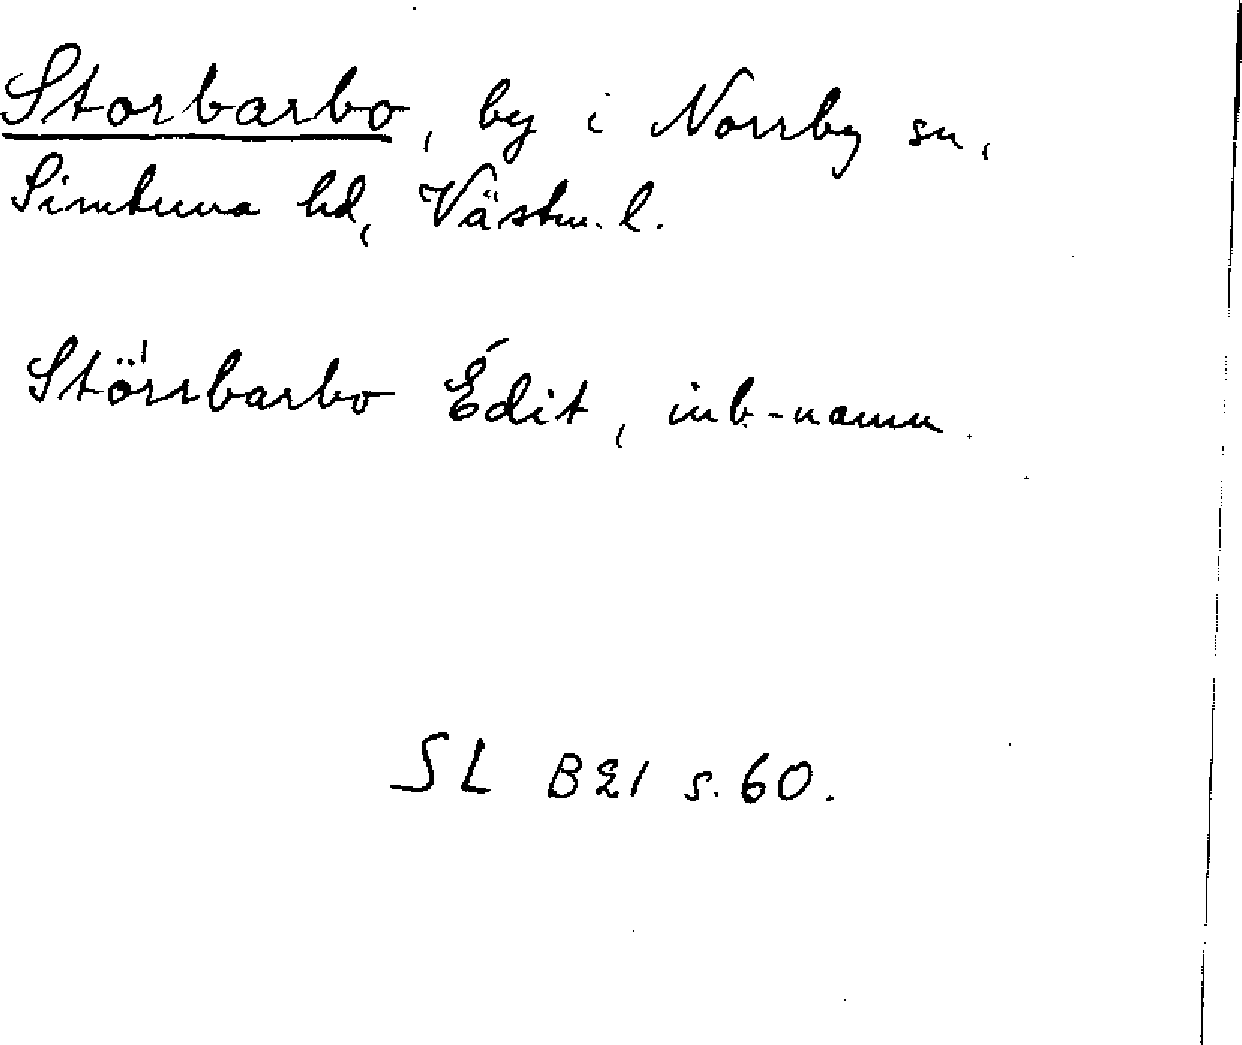 Storbarbo, by i Norrby sn,
Simtuna hd, Västm. l.
Störrbarbo Édit, inb-namn.
SL B21 s. 60.